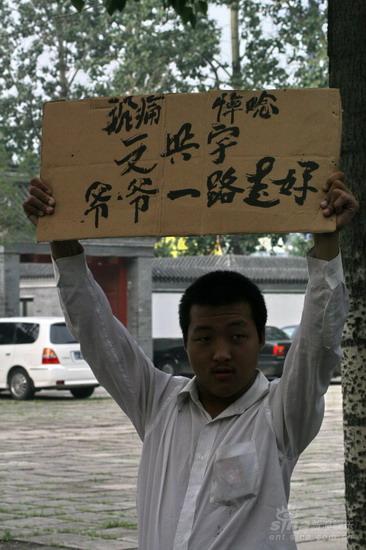 沉痛 悼唸
文兴宇
爷爷一路走好
sina
ent.sina.com.cn